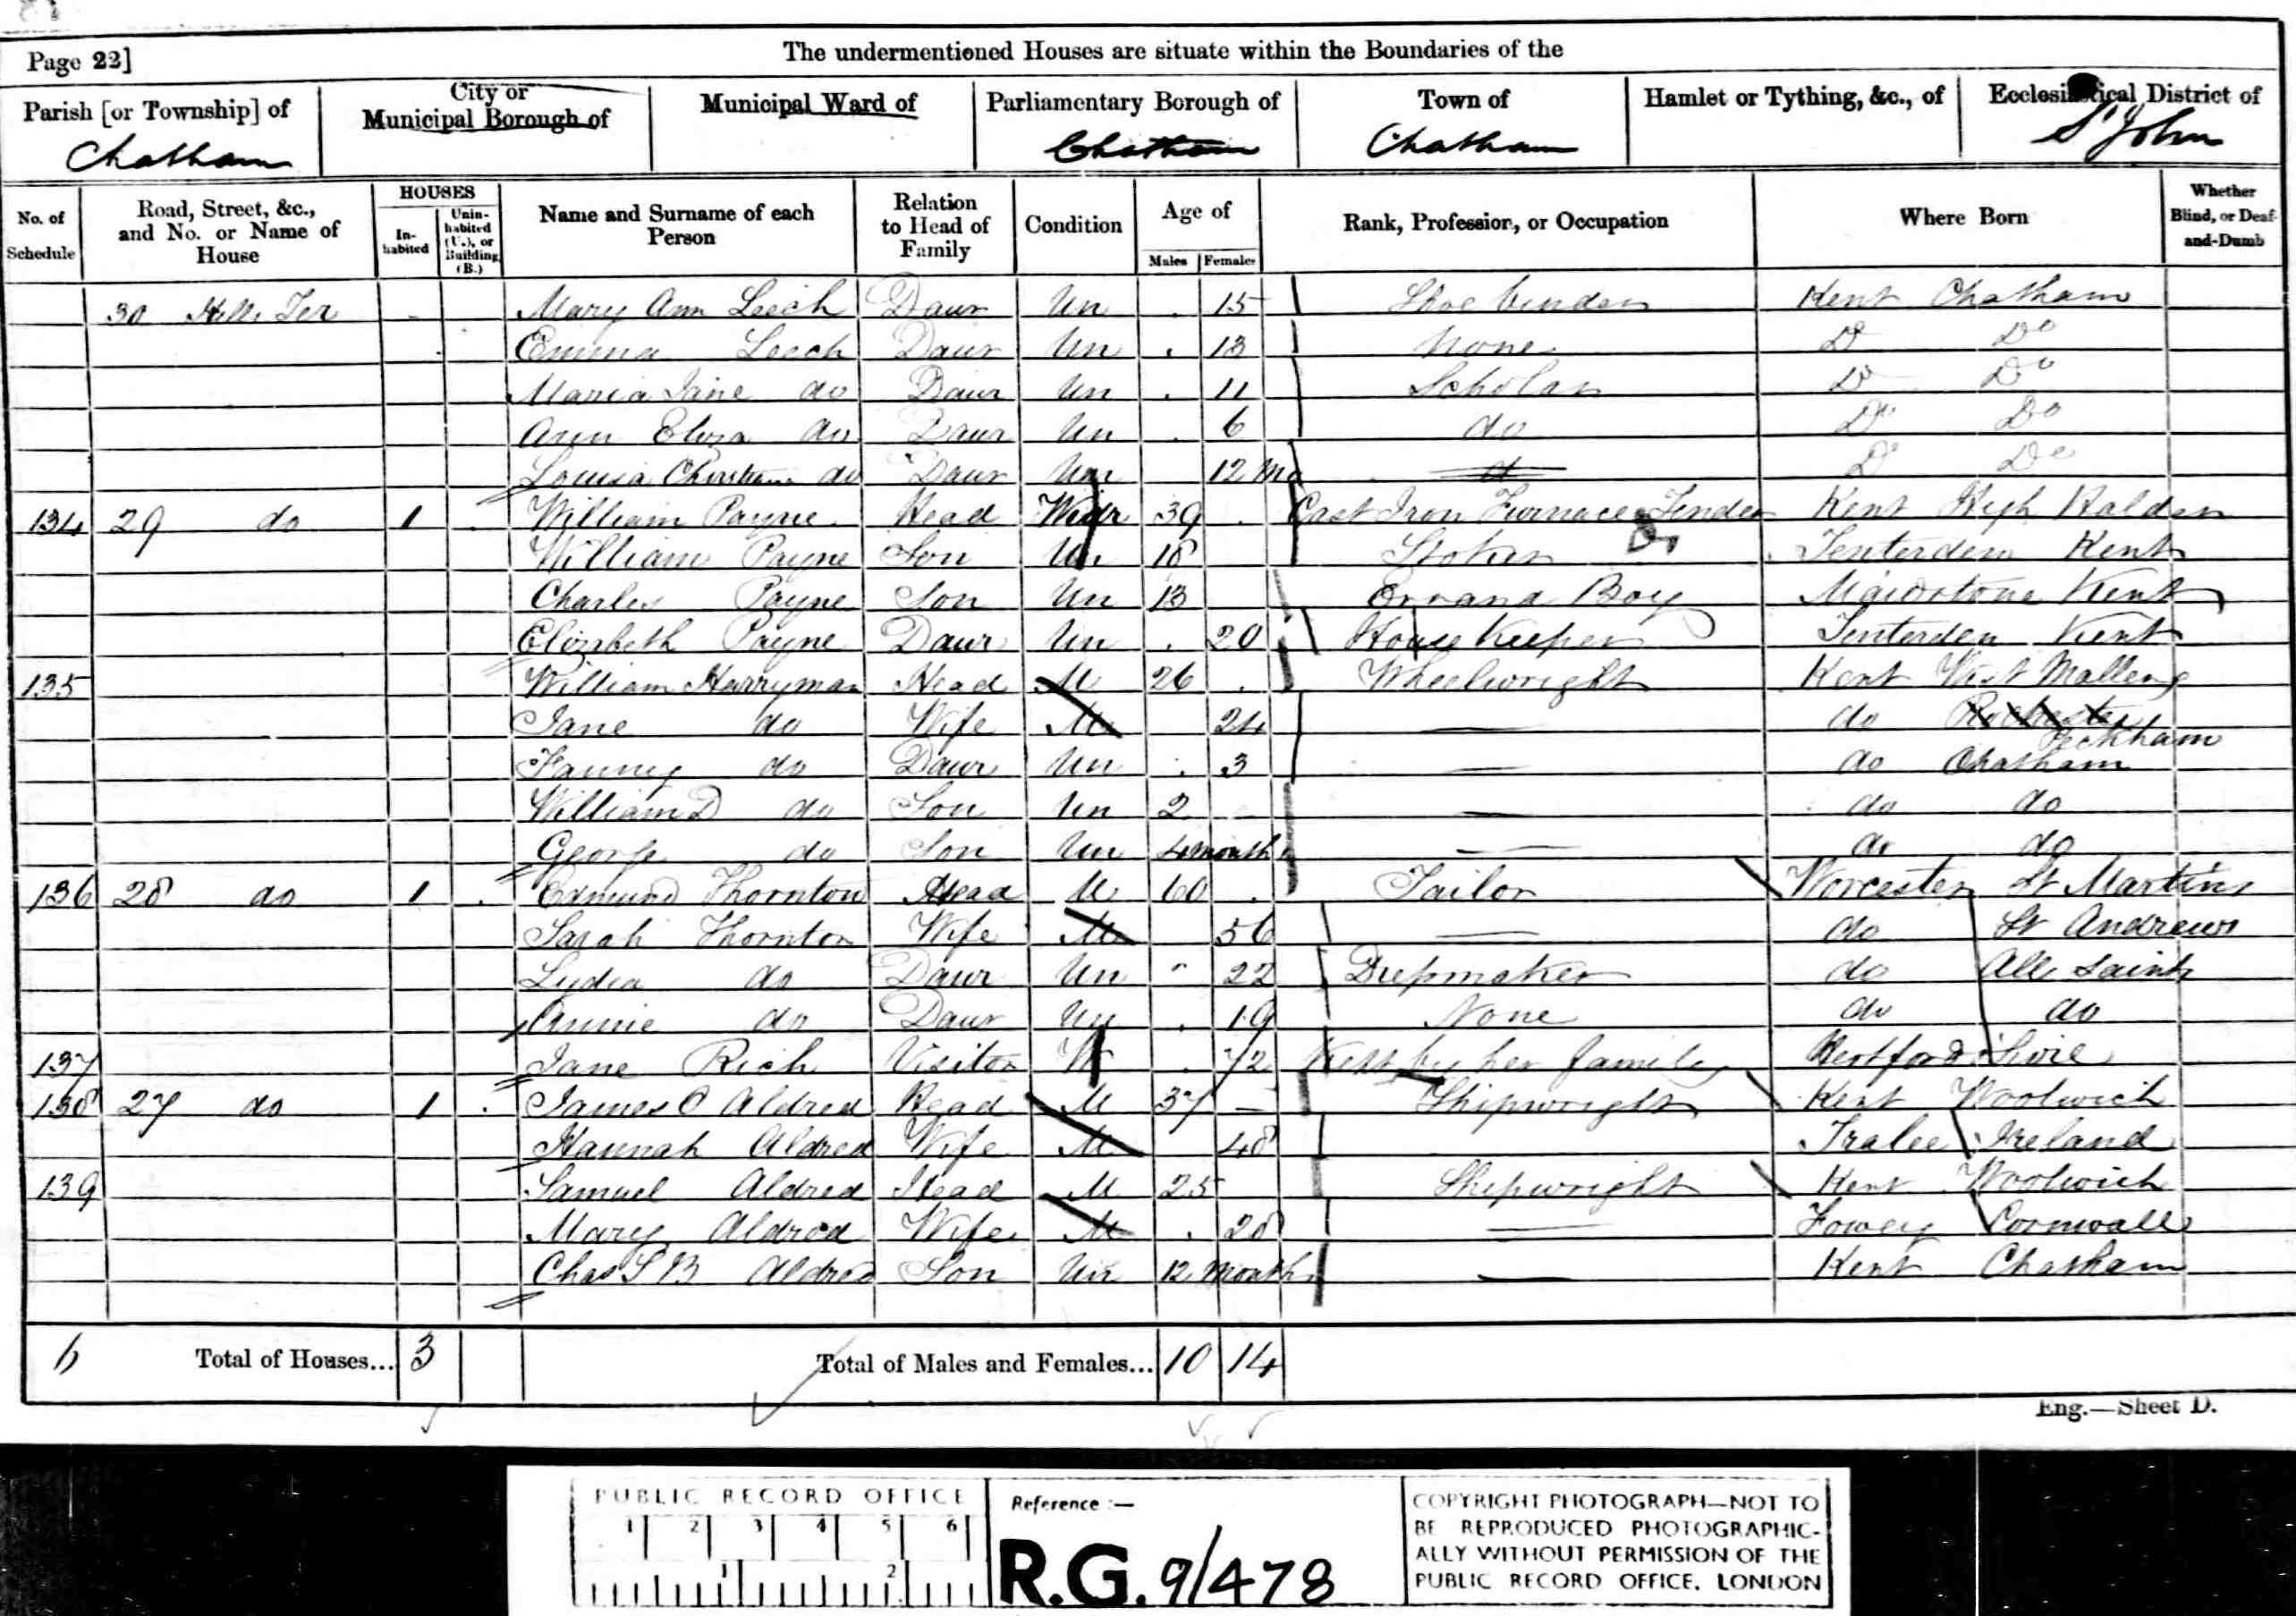 Page 22]
The undermentioned Houses are situate within the Boundaries of the
Parish [or Township] of
Chatham
City or
Municipal Borough of
Municipal Ward of
Parliamentary Borough of
Chatham
Town of
Chatham
Hamlet or Tything, &c., of
Ecclesiastical District of
St John
No. of Schedule
Road, Street, &c., and No. or Name of House
HOUSES
Inhabited
Uninhabited (U.), or Building (B.)
Name and Surname of each Person
Relation to Head of Family
Condition
Age of
Males Females
Rank, Profession, or Occupation
Where Born
Whether Blind, or Deaf-and-Dumb
30 Hills Ter Mary Ann Leech Daur Un 15 Shoe binder Kent Chatham
Emma Leech Daur Un 13 None Do Do
Maria Jane do Daur Un 11 Scholar Do Do
Ann Eliza do Daur Un 6 do Do Do
Louisa do Daur Un 12 Mo Do Do
134 29 do 1 William Payne Head Widr 39 Cast Iron Furnace Tender Kent High Halden
William Payne Son Un 18 Stoker Tenterden Kent
Charles Payne Son Un 13 Errand Boy Maidstone Kent
Elizabeth Payne Daur Un 20 House Keeper Tenterden Kent
135 William Harryman Head M 26 Wheelwright Kent West Malling
Jane do Wife M 24 — do Rochester Peckham
Fanny do Daur Un 3 — do Chatham
William D do Son Un 2 — do do
George do Son Un 4 months — do do
136 28 do 1 Edmund Thornton Head M 60 Tailor Worcester St Martins
Sarah Thornton Wife M 56 — do St Andrews
Lydia do Daur Un 22 Dressmaker do All Saints
Annie do Daur Un 19 None do do
137 Jane Rich Visitor W 72 Kept by her family Hertford
138 27 do 1 James C Aldred Head M 37 — Shipwright Kent Woolwich
Hannah Aldred Wife M 48 Tralee Ireland
139 Samuel Aldred Head M 25 Shipwright Kent Woolwich
Mary Aldred Wife M 28 — Fowey Cornwall
Chas S B Aldred Son Un 12 Months — Kent Chatham
6 Total of Houses... 3 Total of Males and Females... 10 14
Eng.—Sheet D.
PUBLIC RECORD OFFICE
1 2 3 4 5 6
1 2
Reference :—
R.G. 9/478
COPYRIGHT PHOTOGRAPH—NOT TO
BE REPRODUCED PHOTOGRAPHIC-
ALLY WITHOUT PERMISSION OF THE
PUBLIC RECORD OFFICE, LONDON